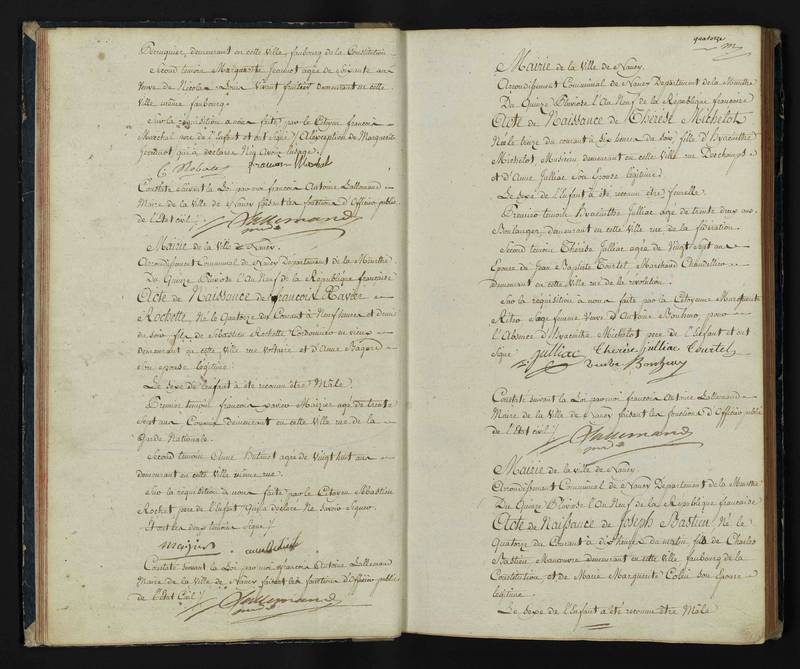 Perruquier, demeurant en cette ville, faubourg de la Constitution
Second temoin Marguerite Jeannot agée de Soixante ans
Veuve de Nicolas Vivant fruitier demeurant en cette
Ville même faubourg.
Sur la requisition à nous faite par le Citoyen francois
Marchal pere de l'Enfant et ont Signé à l'exception de Marguerite
Jeannot qui a declaré N'en avoir l'usage.
francois Marchal
Constaté suivant la Loi par moi francois Antoine Lallemand
Maire de la Ville de Nancy faisant les fonctions d'Officier public
de l'Etat civil
Lallemand
Mairie de la Ville de Nancy.
Arrondissement Communal de Nancy Departement de la Meurthe
Du Quinze Pluviose l'An Neuf de la République francaise
Acte de Naissance de francois Xavier
Rochette, Né le Quatorze du Courant à Neuf heures et demie
du soir, fils de Sébastien Rochette Cordonnier en vieux
demeurant en cette Ville rue Voltaire et d'Anne Bagard
Son epouse legitime.
Le Sexe de l'enfant a été reconnu être Mâle.
Premier temoin francois Xavier Maizier agé de trente
Sept ans demeurant en cette Ville rue de la
Garde Nationale.
Second temoin Anne agée de Vingt huit ans
demeurant en cette Ville même rue.
Sur la requisition à nous faite par le Citoyen Sébastien
Rochet pere de l'Enfant Qui a declaré Ne Savoir Signer
Et ont les deux temoins Signé
Constaté suivant la Loi par moi francois Antoine Lallemand
Maire de la Ville de Nancy faisant les fonctions d'Officier public
de l'Etat Civil
Lallemand
quatorze
Mairie de la Ville de Nancy.
Arrondissement Communal de Nancy Departement de la Meurthe
Du Quinze Pluviose l'An Neuf de la République francaise
Acte de Naissance de Thérèse Michelot
Née le treize du courant à Six heures du soir, fille d'Hyacinthe
Michelot, Musicien demeurant en cette Ville rue Deschamps
et d'Anne Julliac Son Epouse legitime.
Le Sexe de l'Enfant à été reconnu etre femelle.
Premier temoin Hyacinthe Julliac agé de trente deux ans
Boulanger, demeurant en cette Ville rue de la fédération.
Second temoin Thérèse Julliac agée de Vingt Sept ans
Epouse de Jean Baptiste Tourtel Marchand Chandellier
demeurant en cette Ville rue de la revolution.
Sur la requisition à nous faite par la Citoyenne Marguerite
Sage femme Veuve d'Antoine Bonhomo, pour
l'Absence d'Hyacinthe Michelot pere de l'Enfant et ont
Signé
Julliac Thérèse Julliac Tourtel
Constaté suivant la Loi par moi francois Antoine Lallemand
Maire de la Ville de Nancy faisant les fonctions d'Officier public
de l'Etat civil
Lallemand
Mairie de la ville de Nancy
Arrondissement Communal de Nancy Departement de la Meurthe
Du Quinze Pluviose l'An Neuf de la République francaise
Acte de Naissance de Joseph Bastien Né le
Quatorze du Courant à dix heures du matin, fils de Charles
Bastien Manœuvre demeurant en cette Ville faubourg de la
Constitution, et de Marie Marguerite Colin Son Epouse
legitime.
Le Sexe de l'Enfant à été reconnu etre Mâle